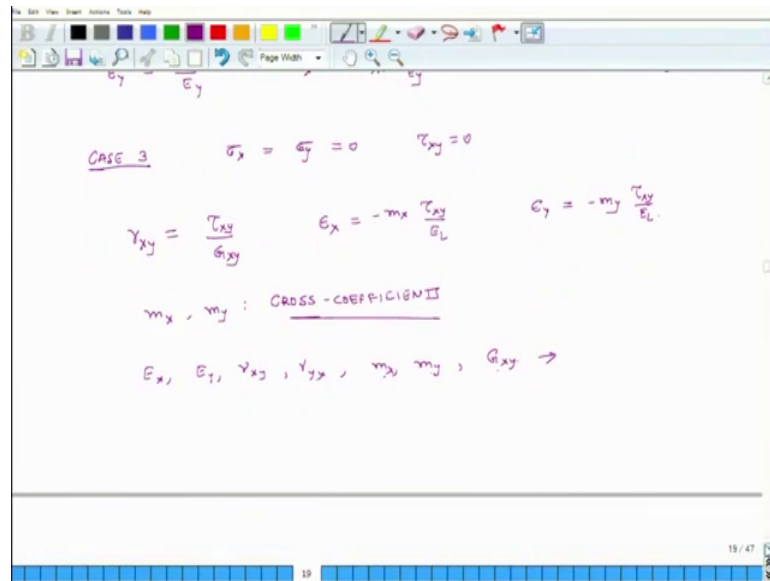 File Edit View Insert Actions Tools Help
B I
Page Width
E_y = / E_y E_y
CASE 3 σ_x = σ_y = 0 τ_xy = 0
γ_xy = τ_xy / G_xy ε_x = -m_x τ_xy / E_L ε_y = -m_y τ_xy / E_L.
m_x, m_y : CROSS-COEFFICIENTS
E_x, E_y, ν_xy, ν_yx, m_x, m_y, G_xy →
19 / 47
19